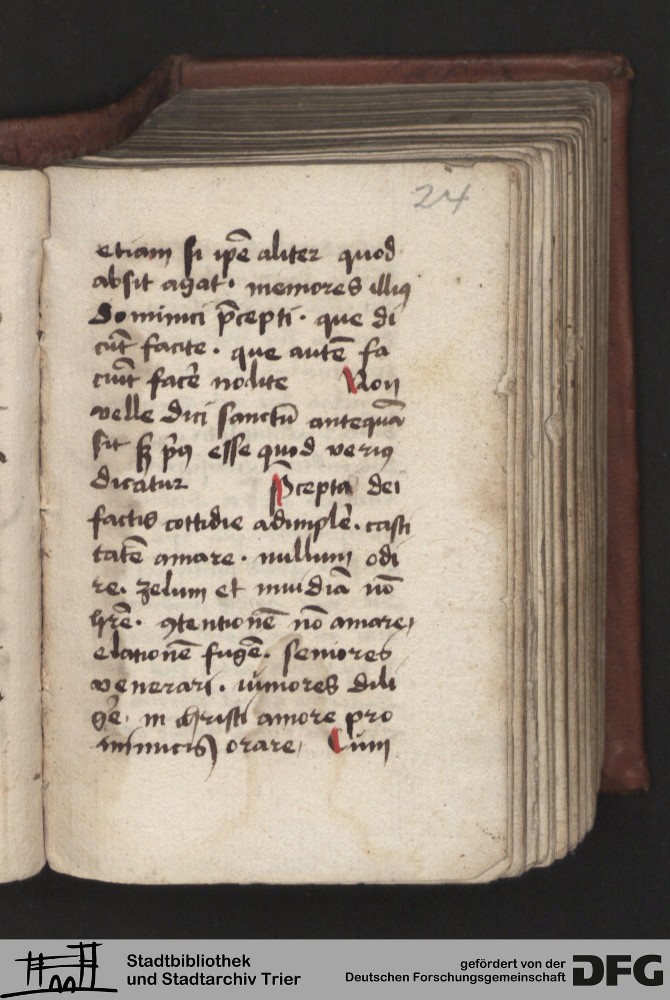 24
etiam si ip̄e aliter quod
absit agat · memores illiꝰ
Dominici p̄cepti · que di
cūt facite · que autē fa
ciūt facēr nolite Non
velle dici sanctū antequā
sit sꝫ pͥꝰ esse quod veriꝰ
dicatur P̄cepta dei
factis cottidie adimplēr · casti
tatē amare · nullum odi
re · zelum et inuidiā nō
hrē · ꝯtentionē nō amare ·
elationē fugēr · seniores
venerari · iuniores dili
gēr · in christi amore pro
inimicis orare · Cum
Stadtbibliothek
und Stadtarchiv Trier
gefördert von der
Deutschen Forschungsgemeinschaft
DFG